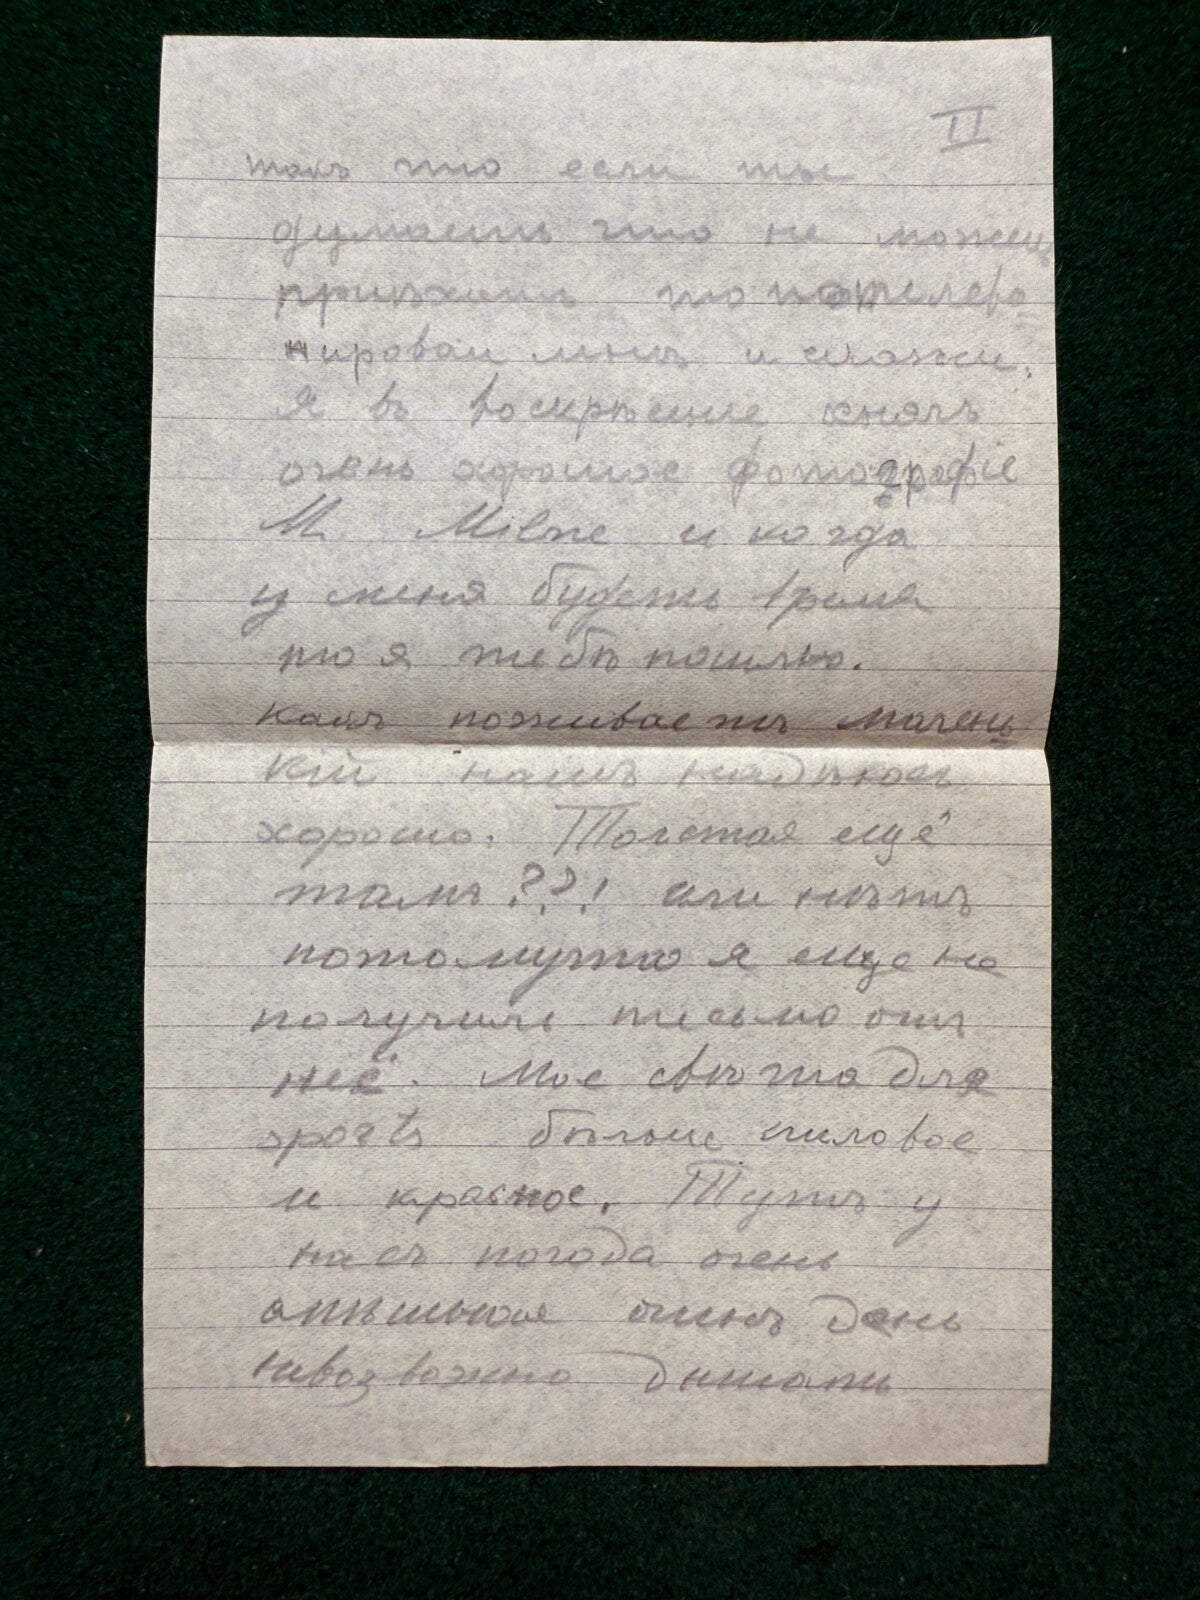 II
такъ что если ты
думаешь что не можешь
приѣхать то потелефо
нировай мнѣ и скажи.
Я въ воскрѣсніе снялъ
очень хорошое фотографіе
M Milne и когда
у меня будетъ время
то я тебѣ пошлю.
Какъ поживаетъ мален
кій нашъ надѣюсь
хорошо. Толстая ещё
тамъ??! или нѣтъ
потомучто я еще не
получилъ письмо отъ
неё. Мое свѣта для
больше лиловое
и красное. Тутъ у
насъ погода очень
день
невозможно дышать